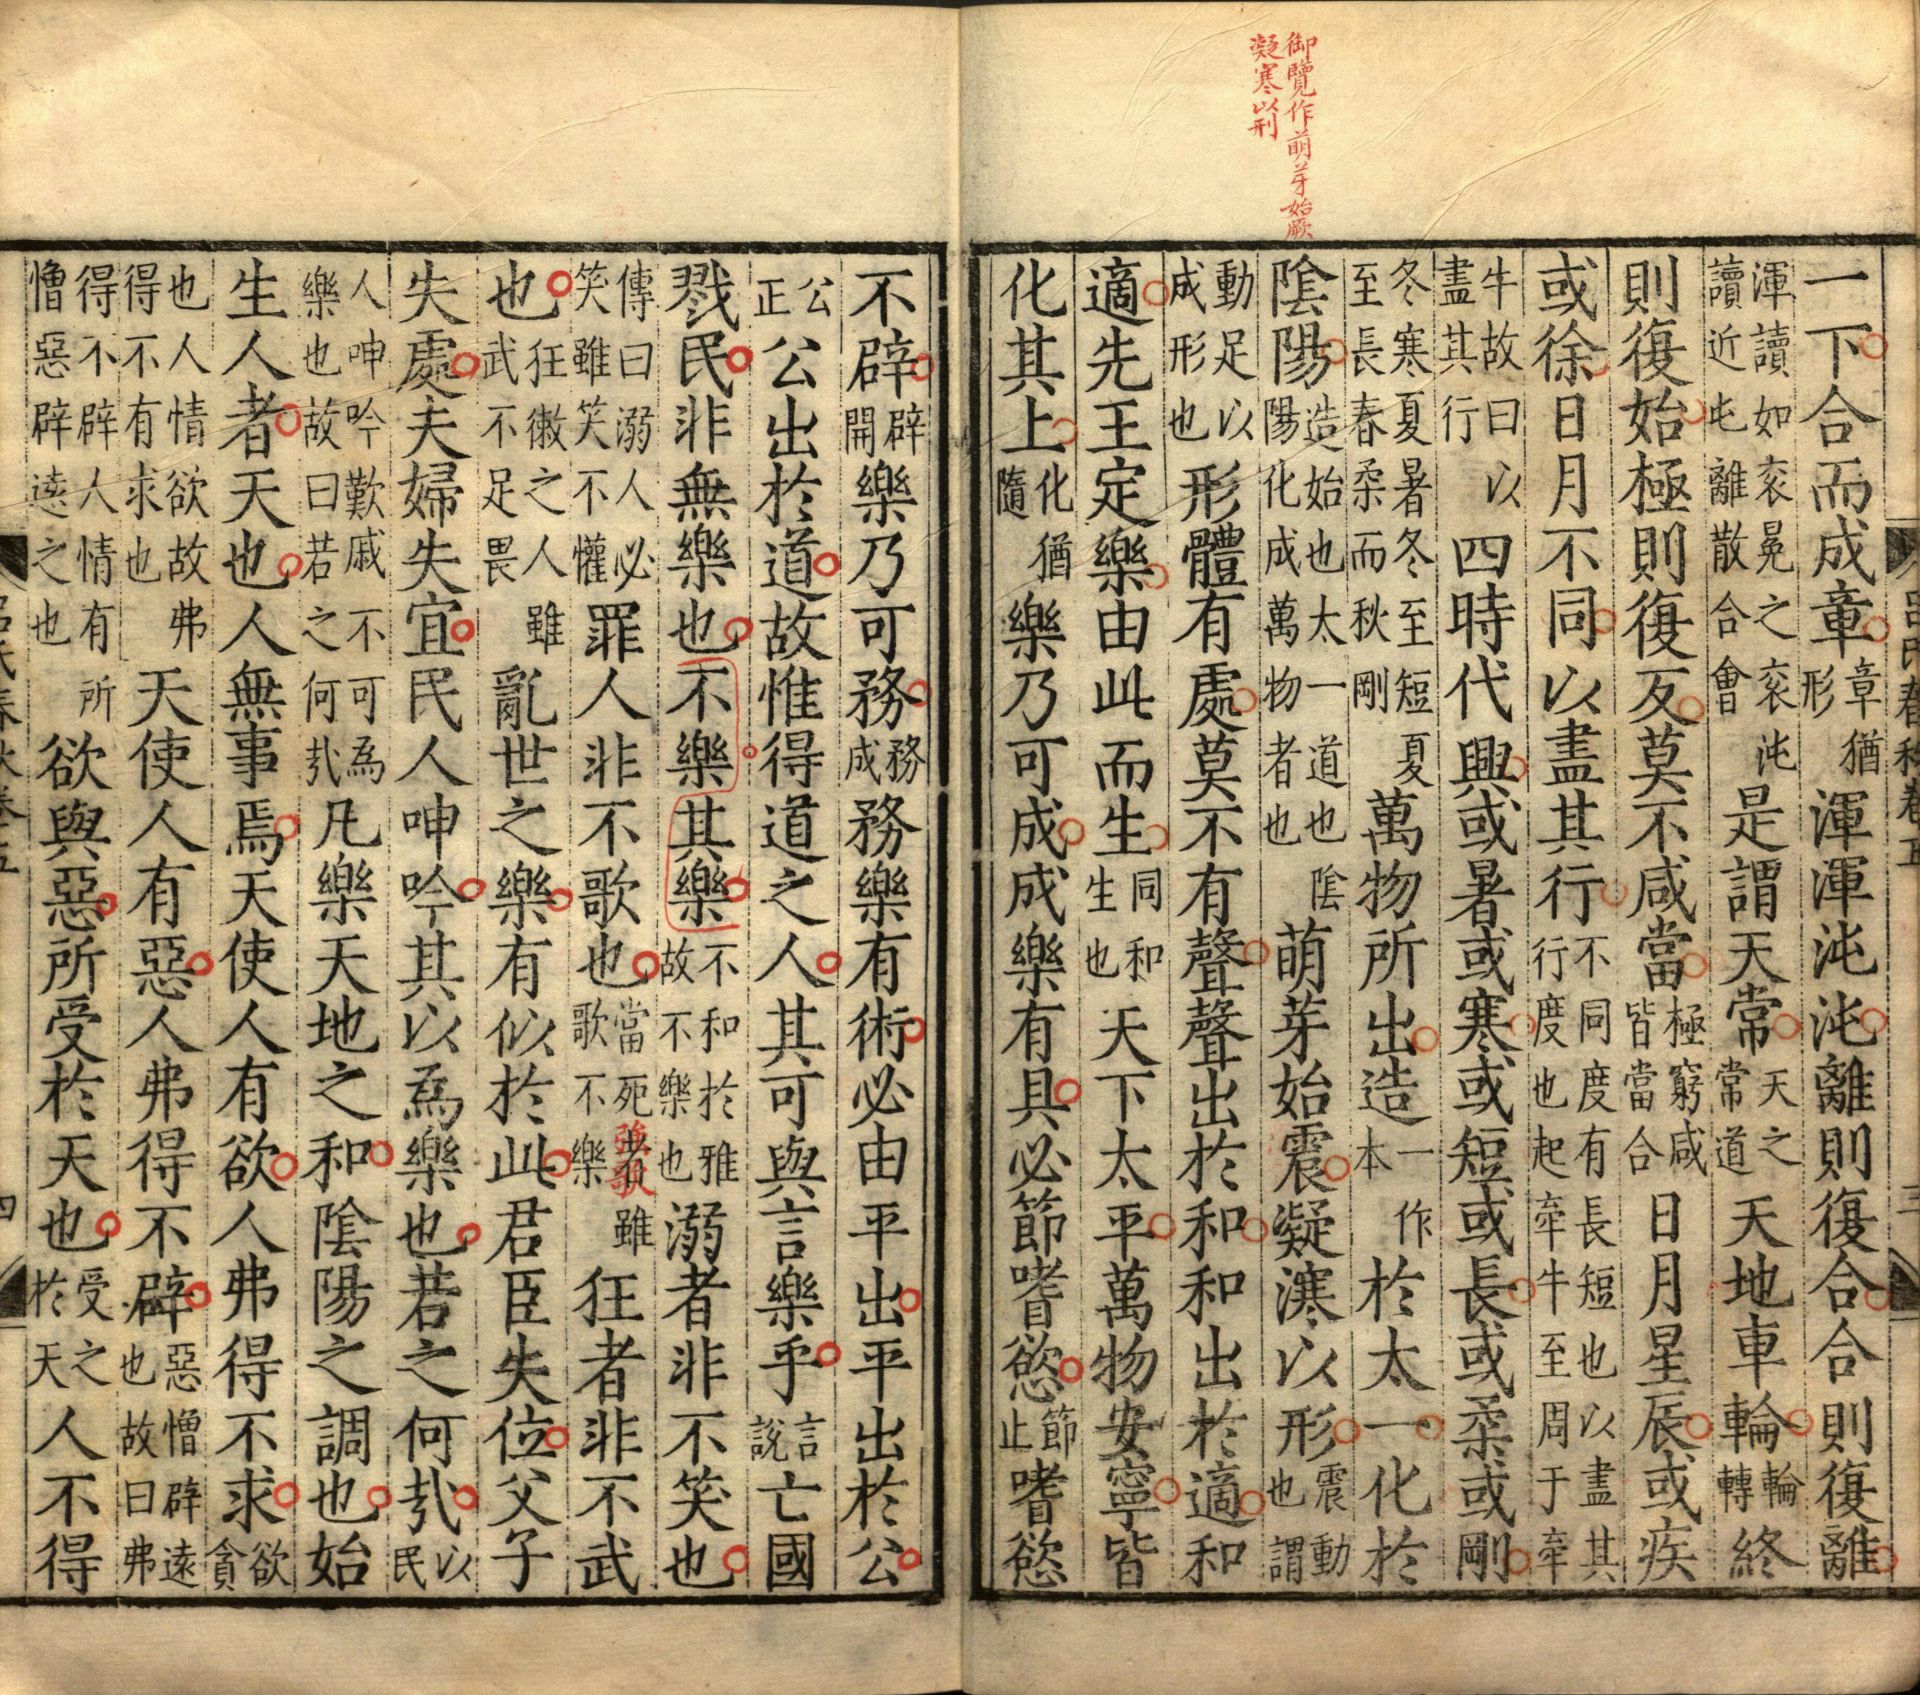 御覽作萌芽始厥
凝寒以刑
呂氏春秋卷五 三
一下合而成章章猶形渾渾沌沌離則復合合則復離
渾讀如衮冕之衮沌讀近屯離散合會是謂天常天之常道天地車輪輪轉終
則復始極則復反莫不咸當極窮咸皆當合日月星辰或疾
或徐日月不同以盡其行不同度有長短也以盡其行度也起牽牛至周于牽
牛故曰以盡其行四時代興或暑或寒或短或長或柔或剛
冬寒夏暑冬至短夏至長春柔而秋剛萬物所出造一作本於太一化於
陰陽造始也太一道也陰陽化成萬物者也萌芽始震凝㵾以形震動也謂
動足以成形也形體有處莫不有聲聲出於和和出於適和
適先王定樂由此而生同和生也天下太平萬物安寧皆
化其上化猶隨樂乃可成成樂有具必節嗜慾節止嗜慾
不辟辟開樂乃可務務成務樂有術必由平出平出於公
公正公出於道故惟得道之人其可與言樂乎言說亡國
戮民非無樂也不樂其樂不和於雅故不樂也溺者非不笑也
傳曰溺人必笑雖笑不懽罪人非不歌也當死者雖歌不樂狂者非不武
強歌
也狂㣲之人雖武不足畏亂世之樂有似於此君臣失位父子
失處夫婦失宜民人呻吟其以為樂也若之何㢤以民
人呻吟歎戚不可為樂也故曰若之何㢤凡樂天地之和陰陽之調也始
生人者天也人無事焉天使人有欲人弗得不求欲貪
也人情欲故弗得不有求也天使人有惡人弗得不辟惡憎辟遠也故曰弗
得不辟人情有所憎惡辟遠之也欲與惡所受於天也受之於天人不得
呂氏春秋卷五 四